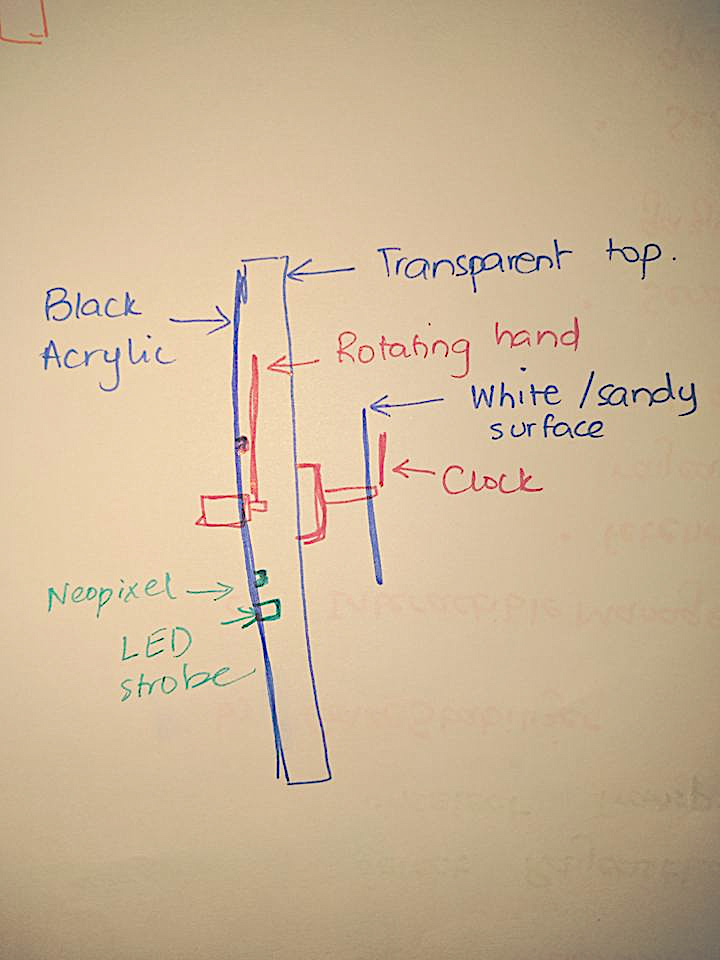 Transparent top.
Black
Acrylic
Rotating hand
White /sandy
surface
Clock
Neopixel
LED
strobe